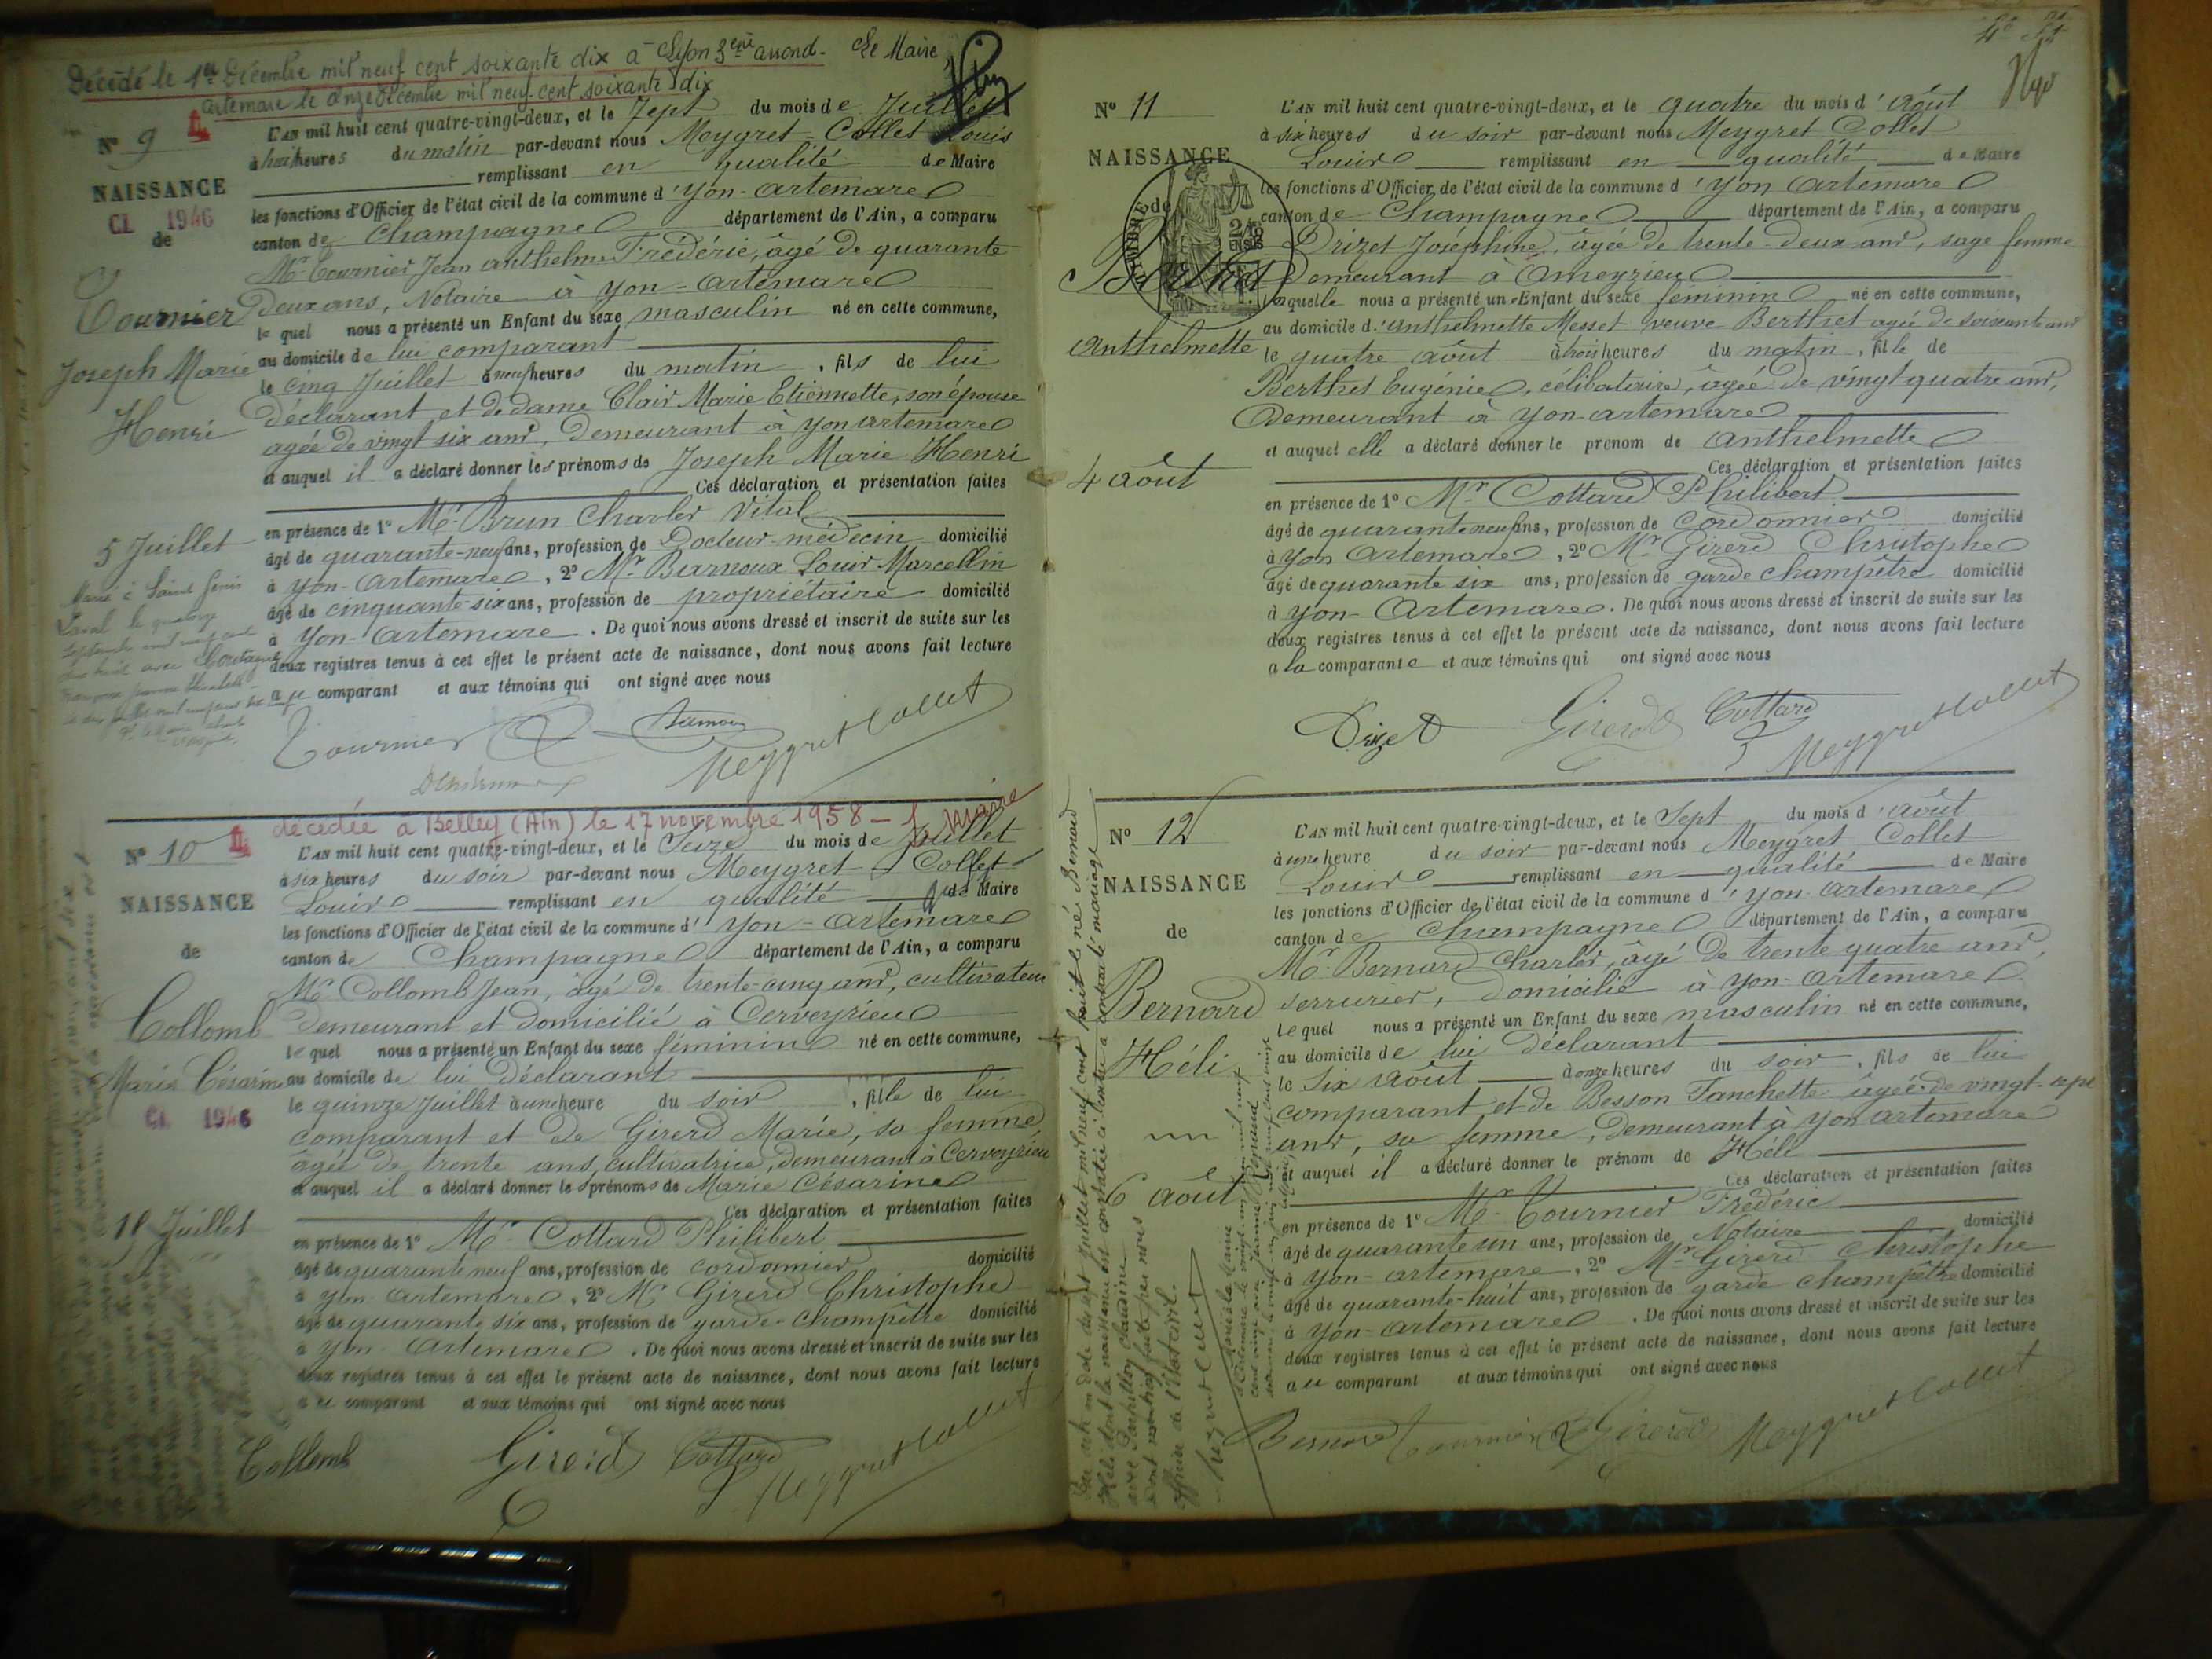 Décédé le 1er Décembre mil neuf cent soixante dix à Lyon 3ème arrond. Le Maire,
Artemare le onze Décembre mil neuf cent soixante dix
No 9
NAISSANCE
CI 1946
de
Tournier
Joseph Marie
Henri
5 Juillet
Marié à Saint Genis
Laval le quatorze
L'AN mil huit cent quatre-vingt-deux, et le Sept du mois de Juillet
à huit heures du matin par-devant nous Meygret-Collet Louis
remplissant en qualité de Maire
les fonctions d'Officier de l'état civil de la commune d'Yon-Artemare
canton de Champagne département de l'Ain, a comparu
Mr Tournier Jean Anthelme Frédéric, âgé de quarante
deux ans, Notaire à Yon-Artemare
lequel nous a présenté un Enfant du sexe masculin né en cette commune,
au domicile de lui comparant
le cinq Juillet à neuf heures du matin, fils de lui
déclarant et de dame Clair Marie Etiennette, son épouse
agée de vingt six ans, demeurant à Yon Artemare
et auquel il a déclaré donner les prénoms de Joseph Marie Henri
Ces déclaration et présentation faites
en présence de 1o Mr Brun Charles Vital
âgé de quarante-neuf ans, profession de Docteur-médecin domicilié
à Yon-Artemare, 2o Mr Louis Marcellin
âgé de cinquante-six ans, profession de propriétaire domicilié
à Yon-Artemare. De quoi nous avons dressé et inscrit de suite sur les
deux registres tenus à cet effet le présent acte de naissance, dont nous avons fait lecture
au comparant et aux témoins qui ont signé avec nous
Tournier
Meygret Collet
décédée à Belley (Ain) le 17 novembre 1958 - Maire
No 10
NAISSANCE
de
Collomb
Marie Césarine
CI 1946
15 Juillet
L'AN mil huit cent quatre-vingt-deux, et le Seize du mois de Juillet
à six heures du soir par-devant nous Meygret Collet
Louis remplissant en qualité de Maire
les fonctions d'Officier de l'état civil de la commune d'Yon-Artemare
canton de Champagne département de l'Ain, a comparu
Mr Collomb Jean, âgé de trente-cinq ans, cultivateur
demeurant et domicilié à Cerveyrieu
lequel nous a présenté un Enfant du sexe féminin né en cette commune,
au domicile de lui déclarant
le quinze Juillet à une heure du soir, fille de lui
comparant et de Girerd Marie, sa femme
âgée de trente ans, cultivatrice, demeurant à Cerveyrieu
et auquel il a déclaré donner les prénoms de Marie Césarine
Ces déclaration et présentation faites
en présence de 1o Mr Cottard Philibert
âgé de quarante neuf ans, profession de cordonnier domicilié
à Yon Artemare, 2o Mr Girerd Christophe
âgé de quarante six ans, profession de garde-champêtre domicilié
à Yon-Artemare. De quoi nous avons dressé et inscrit de suite sur les
deux registres tenus à cet effet le présent acte de naissance, dont nous avons fait lecture
au comparant et aux témoins qui ont signé avec nous
Collomb Girerd Cottard Meygret Collet
No 11
NAISSANCE
de
Berthet
Anthelmette
4 Août
L'AN mil huit cent quatre-vingt-deux, et le quatre du mois d'Août
à six heures du soir par-devant nous Meygret Collet
Louis remplissant en qualité de Maire
les fonctions d'Officier de l'état civil de la commune d'Yon Artemare
canton de Champagne département de l'Ain, a comparu
Drizet Joséphine, âgée de trente-deux ans, sage femme
demeurant à Ameyzieu
laquelle nous a présenté un Enfant du sexe féminin né en cette commune,
au domicile d'Anthelmette Messet veuve Berthet agée de soixante ans
le quatre août à trois heures du matin, fille de
Berthet Eugénie, célibataire, âgée de vingt quatre ans,
demeurant à Yon-Artemare
et auquel elle a déclaré donner le prenom de Anthelmette
Ces déclaration et présentation faites
en présence de 1o Mr Cottard Philibert
âgé de quarante neuf ans, profession de cordonnier domicilié
à Yon Artemare, 2o Mr Girerd Christophe
âgé de quarante six ans, profession de garde champêtre domicilié
à Yon-Artemare. De quoi nous avons dressé et inscrit de suite sur les
deux registres tenus à cet effet le présent acte de naissance, dont nous avons fait lecture
a la comparante et aux témoins qui ont signé avec nous
Drizet Girerd Cottard Meygret Collet
No 12
NAISSANCE
de
Bernard
Héli
6 Août
L'AN mil huit cent quatre-vingt-deux, et le Sept du mois d'Août
à une heure du soir par-devant nous Meygret Collet
Louis remplissant en qualité de Maire
les fonctions d'Officier de l'état civil de la commune d'Yon-Artemare
canton de Champagne département de l'Ain, a comparu
Mr Bernard Charles, âgé de trente quatre ans,
serrurier, domicilié à Yon-Artemare
lequel nous a présenté un Enfant du sexe masculin né en cette commune,
au domicile de lui déclarant
le Six Août à onze heures du soir, fils de lui
comparant et de Besson Fanchette âgée de vingt-sept
ans, sa femme, demeurant à Yon Artemare
et auquel il a déclaré donner le prénom de Héli
Ces déclaration et présentation faites
en présence de 1o Mr Tournier Frédéric
âgé de quarante un ans, profession de Notaire domicilié
à Yon-Artemare, 2o Mr Girerd Christophe
âgé de quarante-huit ans, profession de garde champêtre domicilié
à Yon-Artemare. De quoi nous avons dressé et inscrit de suite sur les
deux registres tenus à cet effet le présent acte de naissance, dont nous avons fait lecture
au comparant et aux témoins qui ont signé avec nous
Bernard Tournier Girerd Meygret Collet